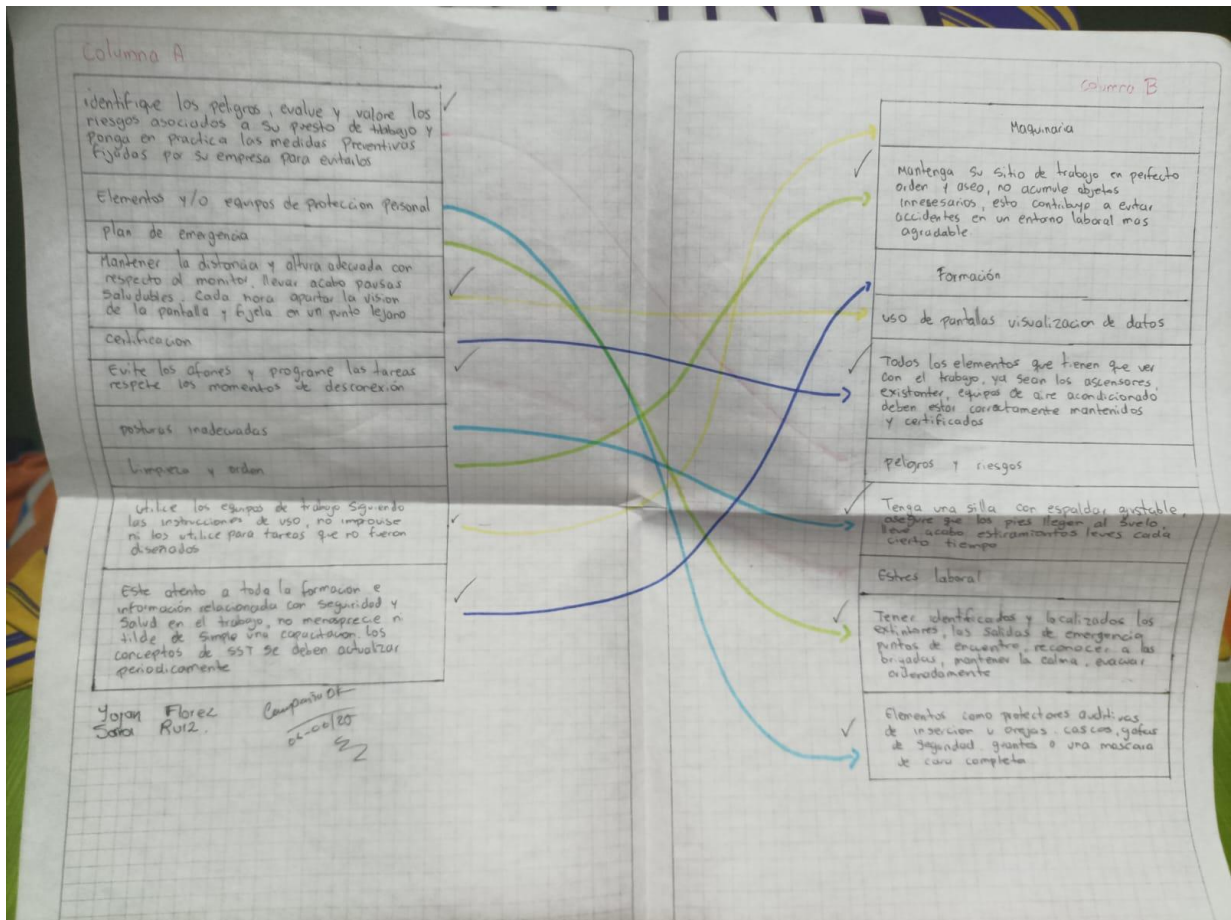 Columna A
identifique los peligros, evalue y valore los
riesgos asociados a su puesto de trabajo y
Ponga en practica las medidas Preventivas
fijadas por su empresa para evitarlos
Elementos y/o equipos de proteccion personal
plan de emergencia
Mantener la distancia y altura adecuada con
respecto al monitor, llevar acabo pausas
Saludables. Cada hora apartar la vision
de la pantalla y fijela en un punto lejano
certificacion
Evite los afanes y programe las tareas
respete los momentos de desconexión
posturas inadecuadas
Limpieza y orden
utilice los equipos de trabajo siguiendo
las instrucciones de uso, no improvise
ni los utilice para tareas que no fueron
diseñados
Este atento a toda la formacion e
información relacionada con seguridad y
Salud en el trabajo, no menosprecie ni
tilde de simple una capacitacion. Los
conceptos de SST se deben actualizar
periodicamente
Florez
Sara Ruiz.
Columna B
Maquinaria
Mantenga su sitio de trabajo en perfecto
orden y aseo, no acumule objetos
innesesarios, esto contribuye a evitar
accidentes en un entorno laboral mas
agradable
Formación
uso de pantallas visualizacion de datos
Todos los elementos que tienen que ver
con el trabajo, ya sean los ascensores
existentes, equipos de aire acondicionado
deben estar correctamente mantenidos
y certificados
peligros y riesgos
Tenga una silla con espaldar ajustable,
asegure que los pies lleguen al suelo,
lleve acabo estiramientos leves cada
cierto tiempo
Estres laboral
Tener identificados y localizados los
extintores, las salidas de emergencia
puntos de encuentro, reconocer a las
brigadas, mantener la calma, evacuar
ordenadamente
Elementos como protectores auditivos
de insercion u orejas, cascos, gafas
de seguridad, guantes o una mascara
de cara completa